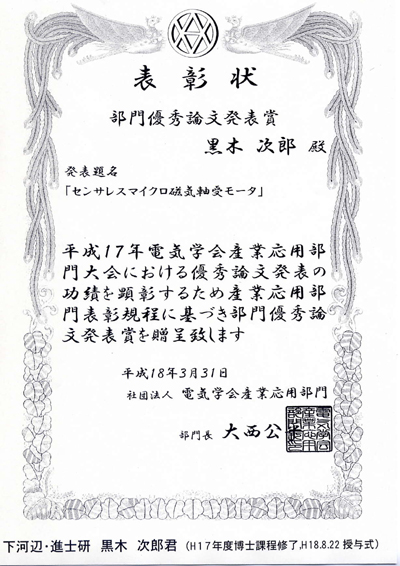 表彰状
部門優秀論文発表賞
黒木 次郎 殿
発表題名
「センサレスマイクロ磁気軸受モータ」
平成17年電気学会産業応用部
門大会における優秀論文発表の
功績を顕彰するため産業応用部
門表彰規程に基づき部門優秀論
文発表賞を贈呈致します
平成18年3月31日
社団法人 電気学会産業応用部門
部門長 大西公
下河辺・進士研 黒木 次郎君 (H17年度博士課程修了,H18.8.22 授与式)